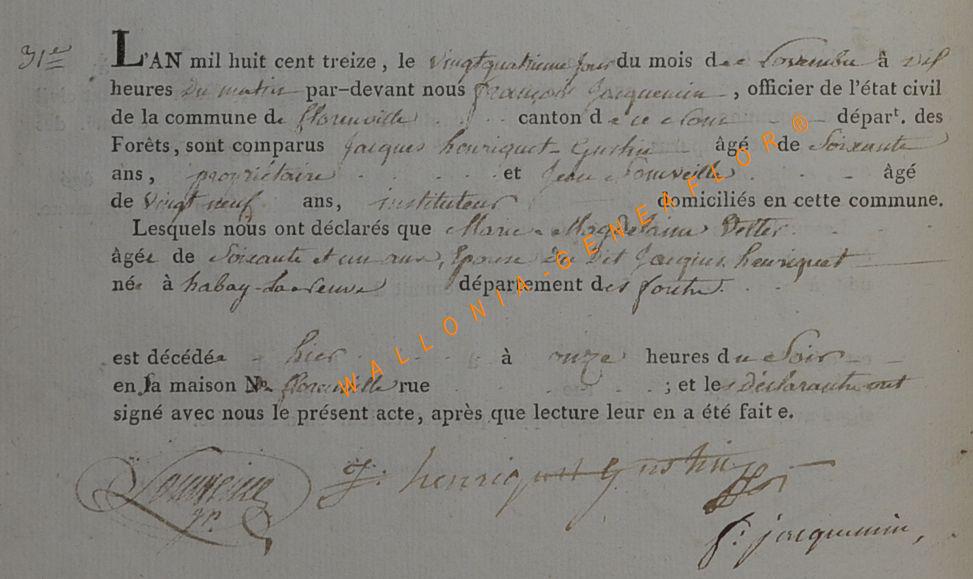 31e
L'AN mil huit cent treize, le vingtquatrieme jour du mois de Novembre à dix
heures du matin par-devant nous françois Jacquemin, officier de l'état civil
de la commune de florenville canton de ce nom départ. des
Forêts, sont comparus Jacques henriquet Gustin âgé de Soixante
ans, propriétaire et Jean âgé
de vingt neuf ans, instituteur domiciliés en cette commune.
Lesquels nous ont déclarés que Marie Magdelaine
âgée de Soixante et un ans, Epouse du dit Jacques henriquet
née à habay-la-neuve département des forêts.
est décédée hier à onze heures du Soir
en la maison No. florenville rue ; et les déclarants ont
signé avec nous le présent acte, après que lecture leur en a été faite.
J. henriquet Gustin
f. jacquemin,
WALLONIA-GENEAFLOR®